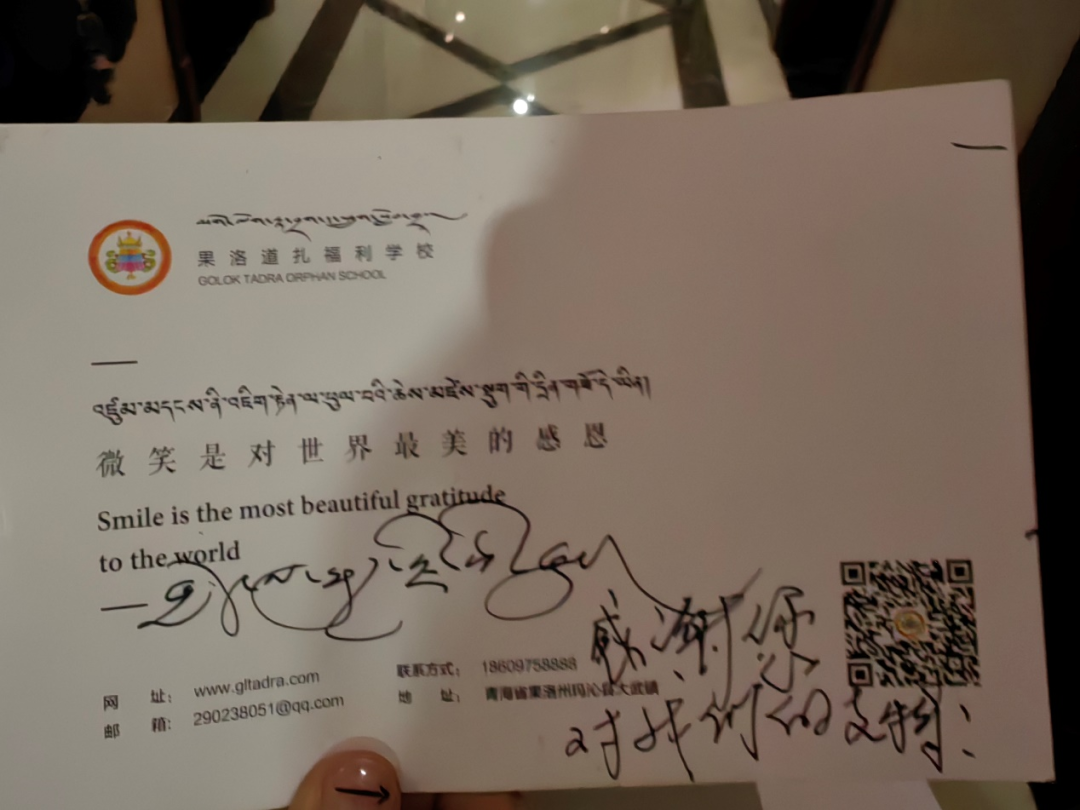 果洛道扎福利学校
GOLOK TADRA ORPHAN SCHOOL
འཛུམ་མདངས་ནི་འཇིག་རྟེན་ལ་ཕུལ་བའི་ཆེས་མཛེས་སྡུག་གི་དྲིན་གཟོ་དེ་ཡིན།
微笑是对世界最美的感恩
Smile is the most beautiful gratitude
to the world
感谢您
对我们的支持！
网 址： www.gltadra.com
邮 箱： 290238051@qq.com
联系方式： 18609758888
地 址： 青海省果洛州玛沁县大武镇